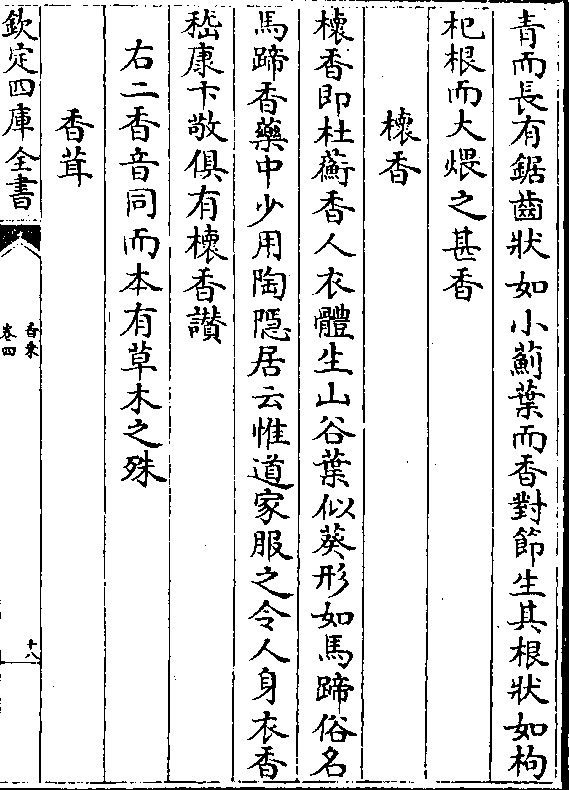 青而長有鋸齒狀如小薊葉而香對節生其根狀如枸
杞根而大煨之甚香
櫰香
櫰香即杜蘅香人衣體生山谷葉似葵形如馬蹄俗名
馬蹄香藥中少用陶隠居云惟道家服之令人身衣香
嵇康卞敬俱有櫰香讃
右二香音同而本有草木之殊
香茸
欽定四庫全書
香乗
卷四
十八